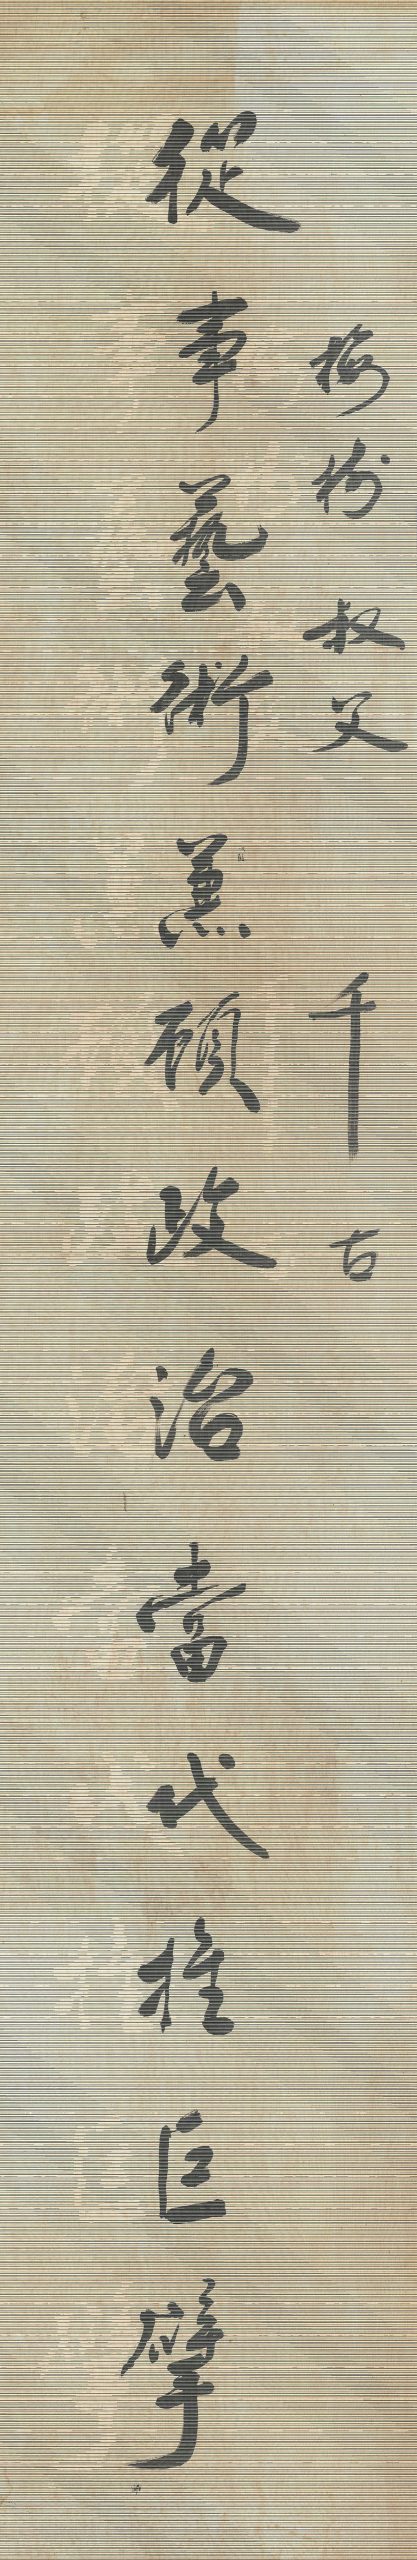 梅村叔父 千古
從事藝術兼顧政治當代推巨擘